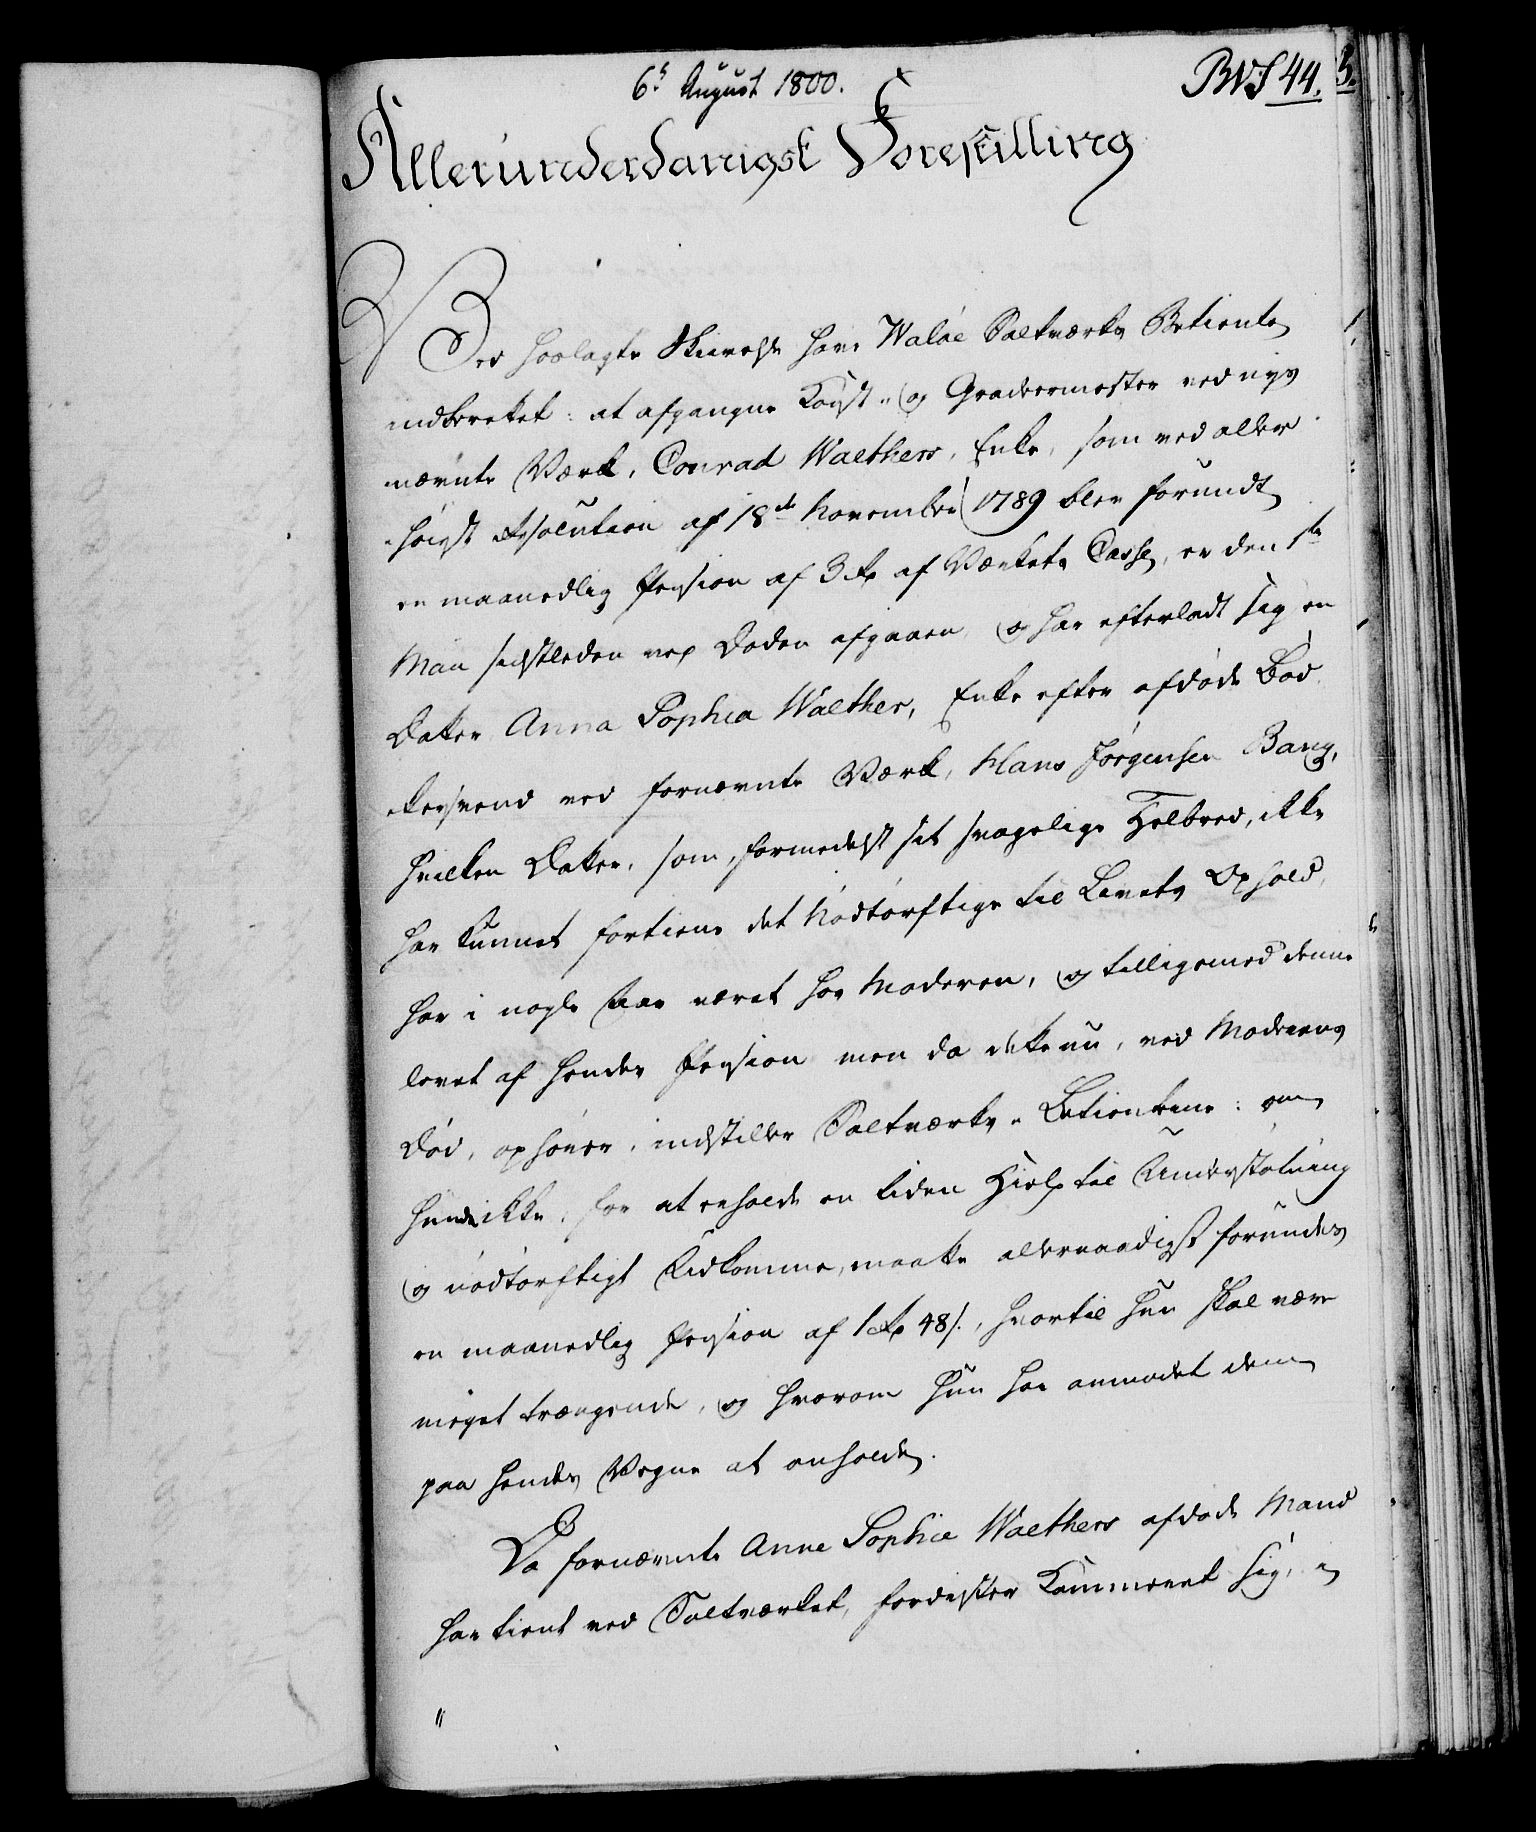 6t August 1800.
BVS 44.
Allerunderdanigst Forestilling
Ved hoslagte Skrivelse have Waløe Saltværks Betiente
indberettet: at afgangne Kunst- og Gradeermester ved nys
nævnte Værk, Conrad Walthers, Enke, som ved aller-
høigst Resolution af 18de November 1789 blev forundt
en maanedlig Pension af 3 Rd af Værkets Casse, er den 1te
Maii sidstleden ved Døden afgaaen, og har efterladt sig en
Datter Anna Sophia Walther, Enke efter afdøde Bød-
kersvend ved fornævnte Værk, Hans Jørgensen Bang,
hvilken Datter, som, formedelst sit svagelige Helbred, ikke
har kunnet fortiene det Nødtørftige til Livets Ophold,
har i nogle Aar været hos Moderen, og tilligemed denne
levet af hendes Pension men da dette nu, ved Moderens
Død, ophører, indstiller Saltværks-Betientene: om
hun ikke, for at erholde en liden Hielp til Understøtning
og nødtørftigt Udkomme, maatte allernaadigst forundes
en maanedlig Pension af 1 Rd 48 s., hvortil hun skal være
meget trængende, og hvorom hun har anmodet dem
paa hendes Vegne at anholde.
Da fornævnte Anne Sophie Walthers afdøde Mand
har tient ved Saltværket, fordrister Kammeret sig, i
"